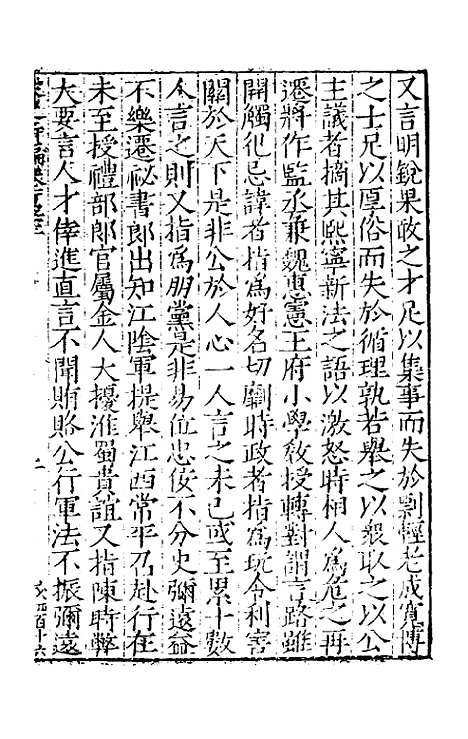 又言明銳果敢之才足以集事而失於剽輕老成寬博
之士足以厚俗而失於循理孰若舉之以衆取之以公
主議者摘其熙寧新法之語以激怒時相人爲危之再
遷將作監丞兼魏惠憲王府小學敎授轉對謂言路雖
開觸犯忌諱者指爲好名切劘時政者指爲玩令利害
關於天下是非公於人心一人言之未已或至累十數
人言之則又指爲朋黨是非易位忠佞不分史彌遠益
不樂遷祕書郎出知江陰軍提舉江西常平召赴行在
未至授禮部郎官屬金人大擾淮蜀貴誼又指陳時弊
大要言人才倖進直言不聞賄賂公行軍法不振彌遠